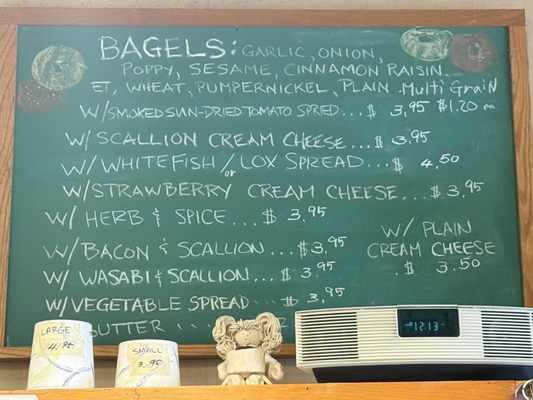 BAGELS: GARLIC, ONION,
POPPY, SESAME, CINNAMON RAISIN
ET, WHEAT, PUMPERNICKEL, PLAIN Multi GraiN
W/SMOKED SUN-DRIED TOMATO SPRED... $ 3.95 $1.20 ea
W/SCALLION CREAM CHEESE... $ 3.95
W/WHITEFISH/or LOX SPREAD... $ 4.50
W/STRAWBERRY CREAM CHEESE... $ 3.95
W/ HERB & SPICE... $ 3.95
W/BACON & SCALLION... $3.95
W/ WASABI & SCALLION... $ 3.95
W/VEGETABLE SPREAD... $ 3.95
BUTTER ...
W/ PLAIN
CREAM CHEESE
$ 3.50
LARGE
4.95
SMALL
3.95
12:13